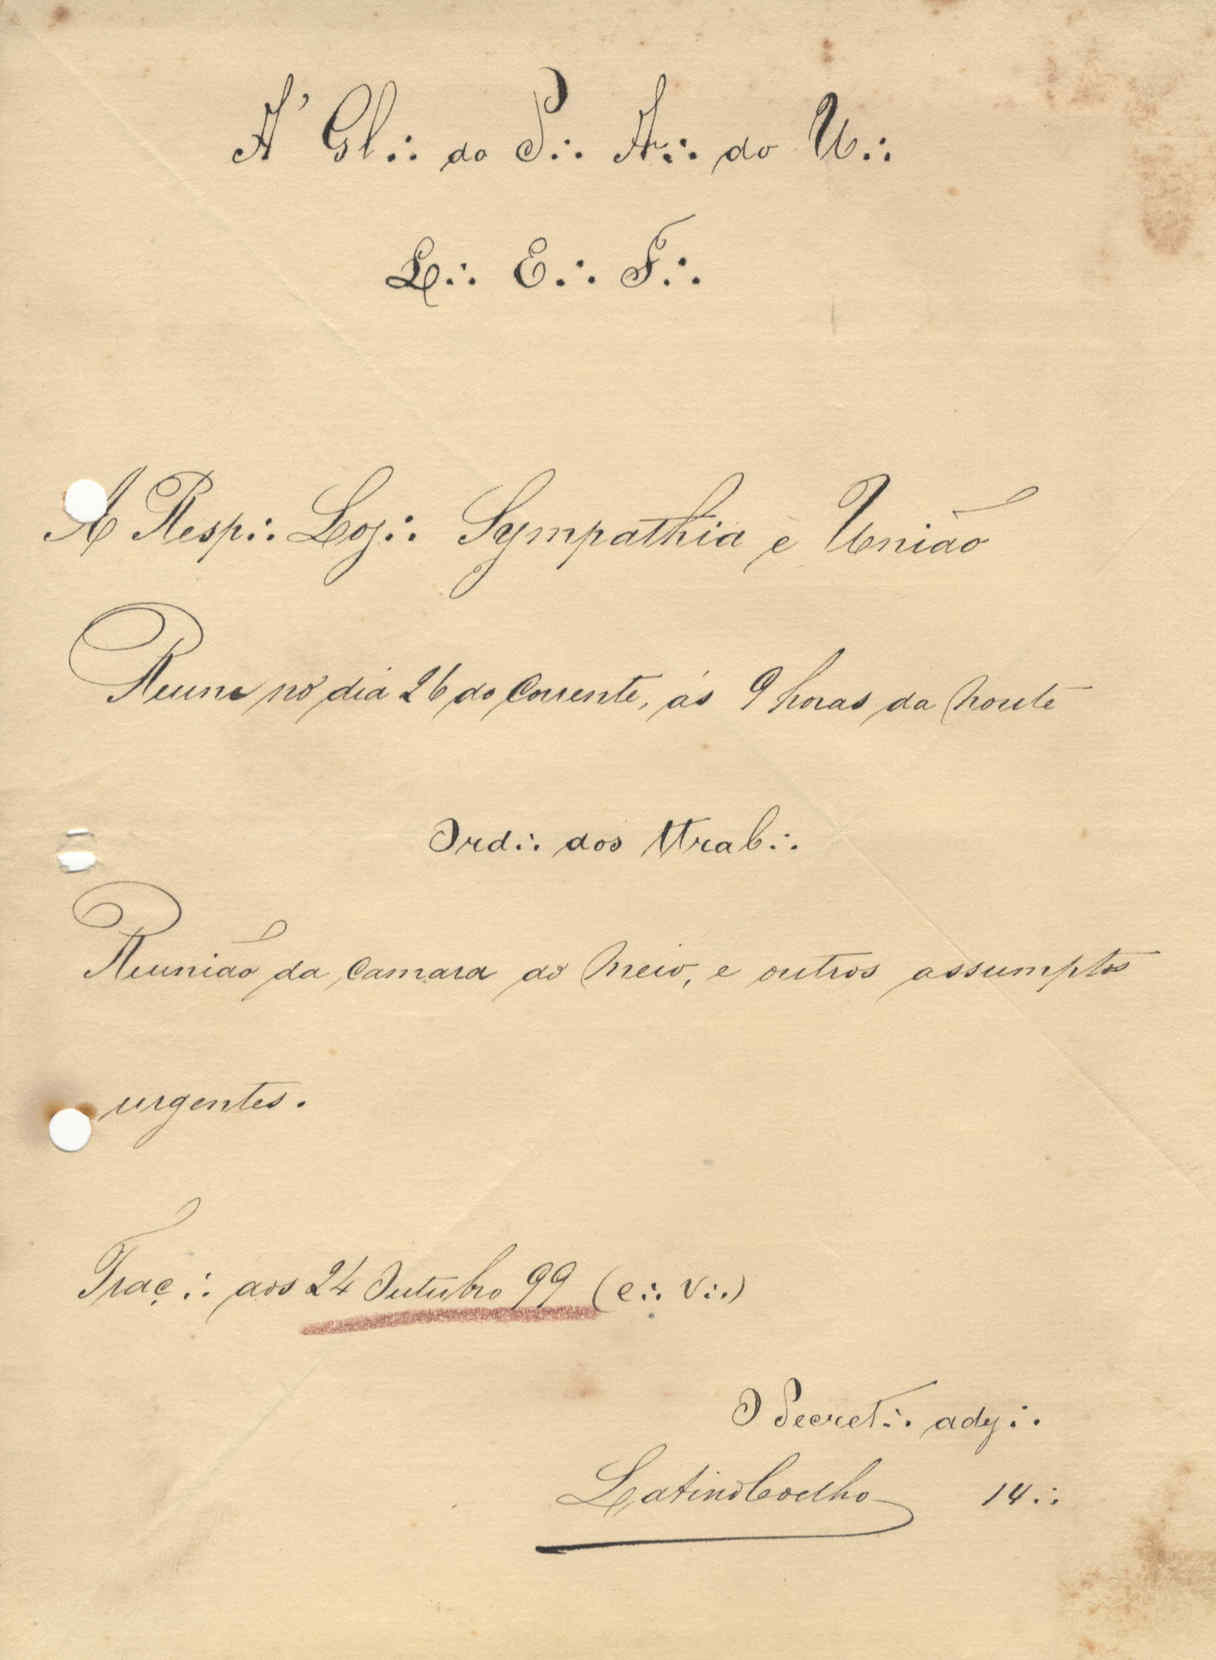 A' Gl∴ do S∴ A∴ do U∴
L∴ E∴ F∴
A Resp∴ Loj∴ Sympathia e União
Reune no dia 26 do corrente, ás 9 horas da noute
Ord∴ dos Trab∴
Reunião da Camara do Meio, e outros assumptos
urgentes.
Traç∴ aos 24 Outubro 99 (e∴ v∴)
O Secret∴ adj∴
Latino Coelho 14∴